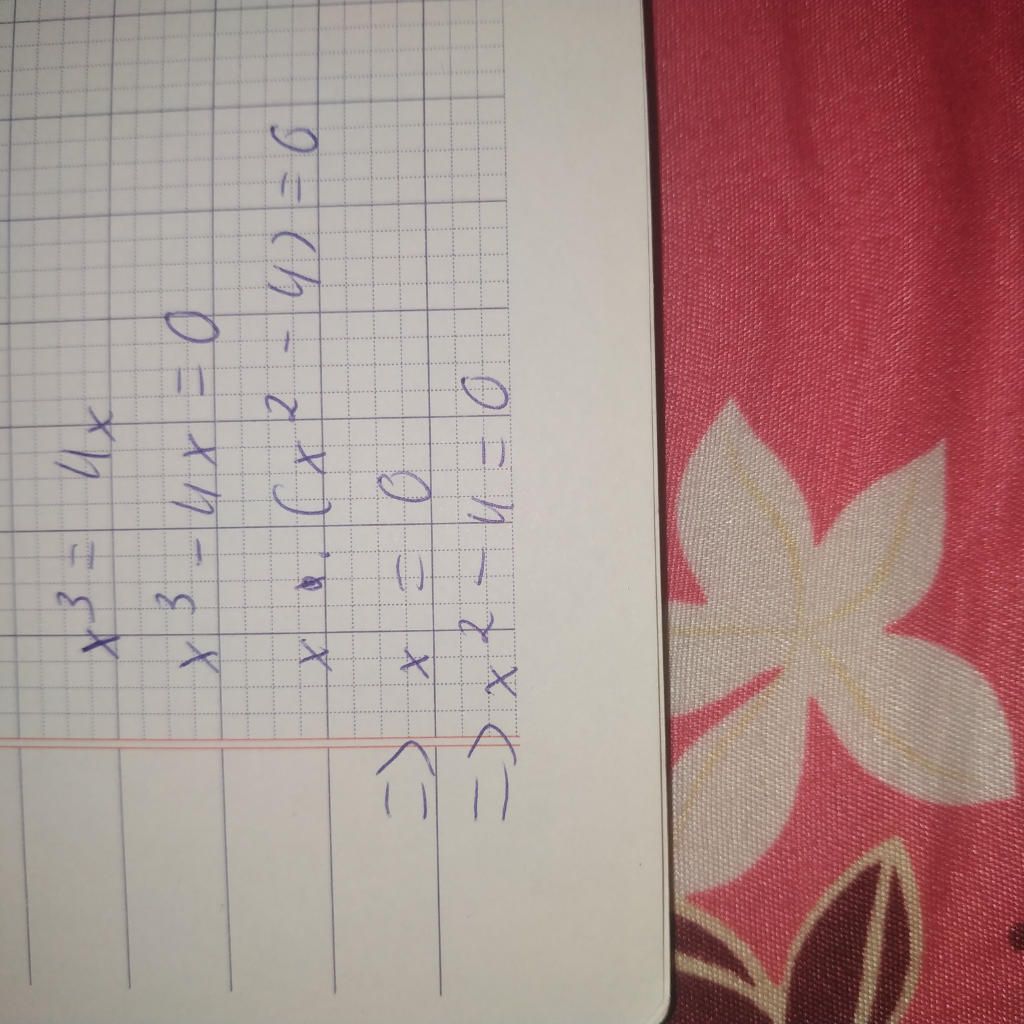 x³ = 4x
x³ - 4x = 0
x · (x² - 4) = 0
=> x = 0
=> x² - 4 = 0